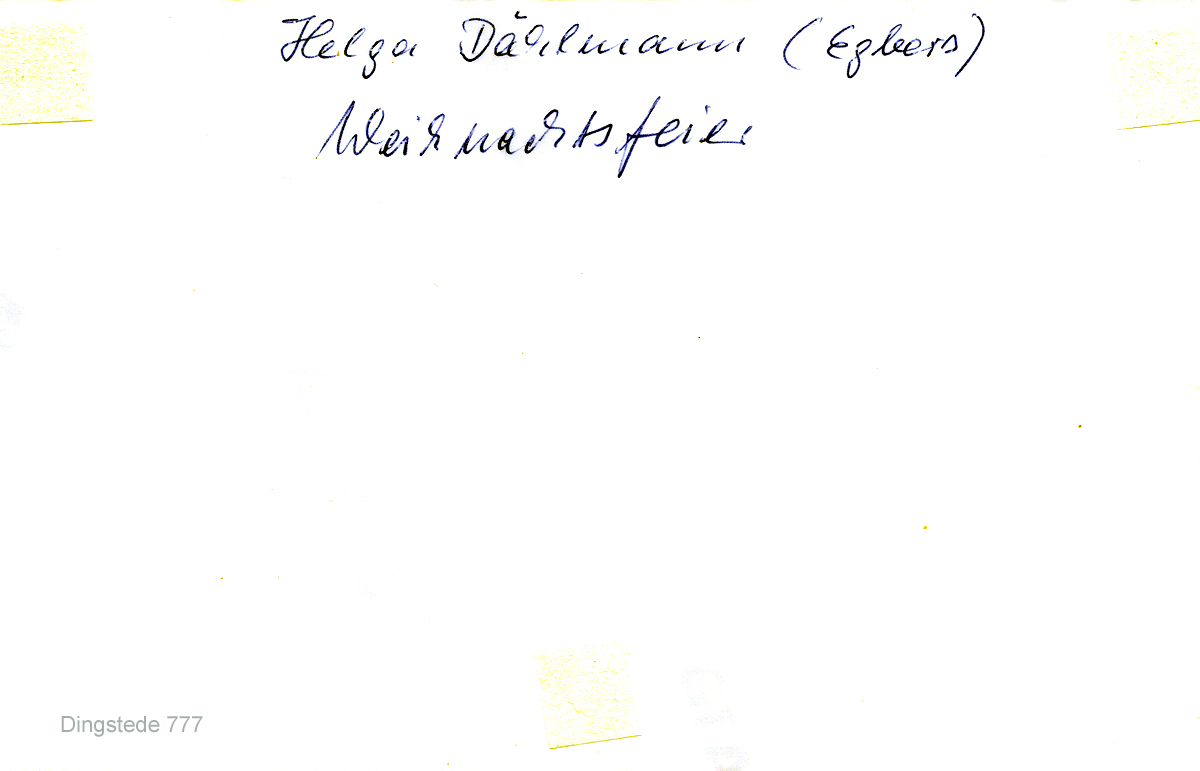 Helga Dählmann (Egbers)
Weihnachtsfeier
Dingstede 777